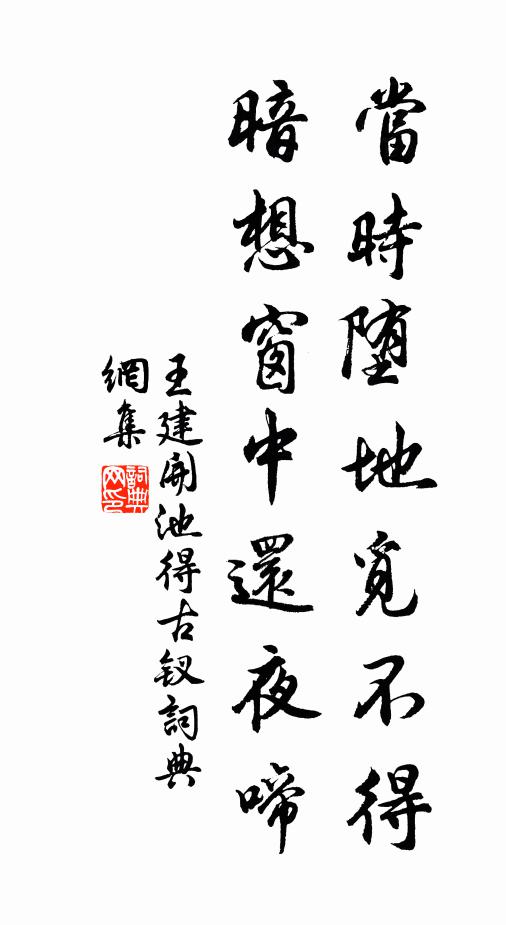 當時堕地覓不得
暗想窗中還夜啼
王建開池得古釵詞典
網集
詞典
网印